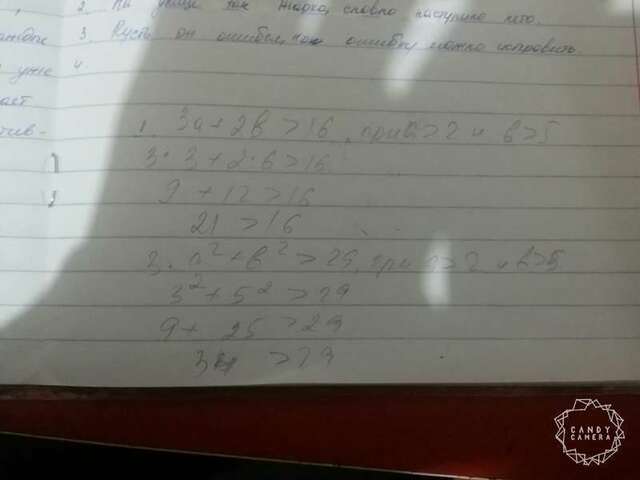 2. На улице так жарко, словно наступило лето.
3. Пусть он ошибся, ошибку можно исправить.
уже 4.
ает
1. 3a + 2b > 16, при a > 2 и b > 5
3 · 3 + 2 · 6 > 16
9 + 12 > 16
21 > 16
3. a² + b² > 29, при a > 2 и b > 5
3² + 5² > 29
9 + 25 > 29
34 > 29
CANDY
CAMERA